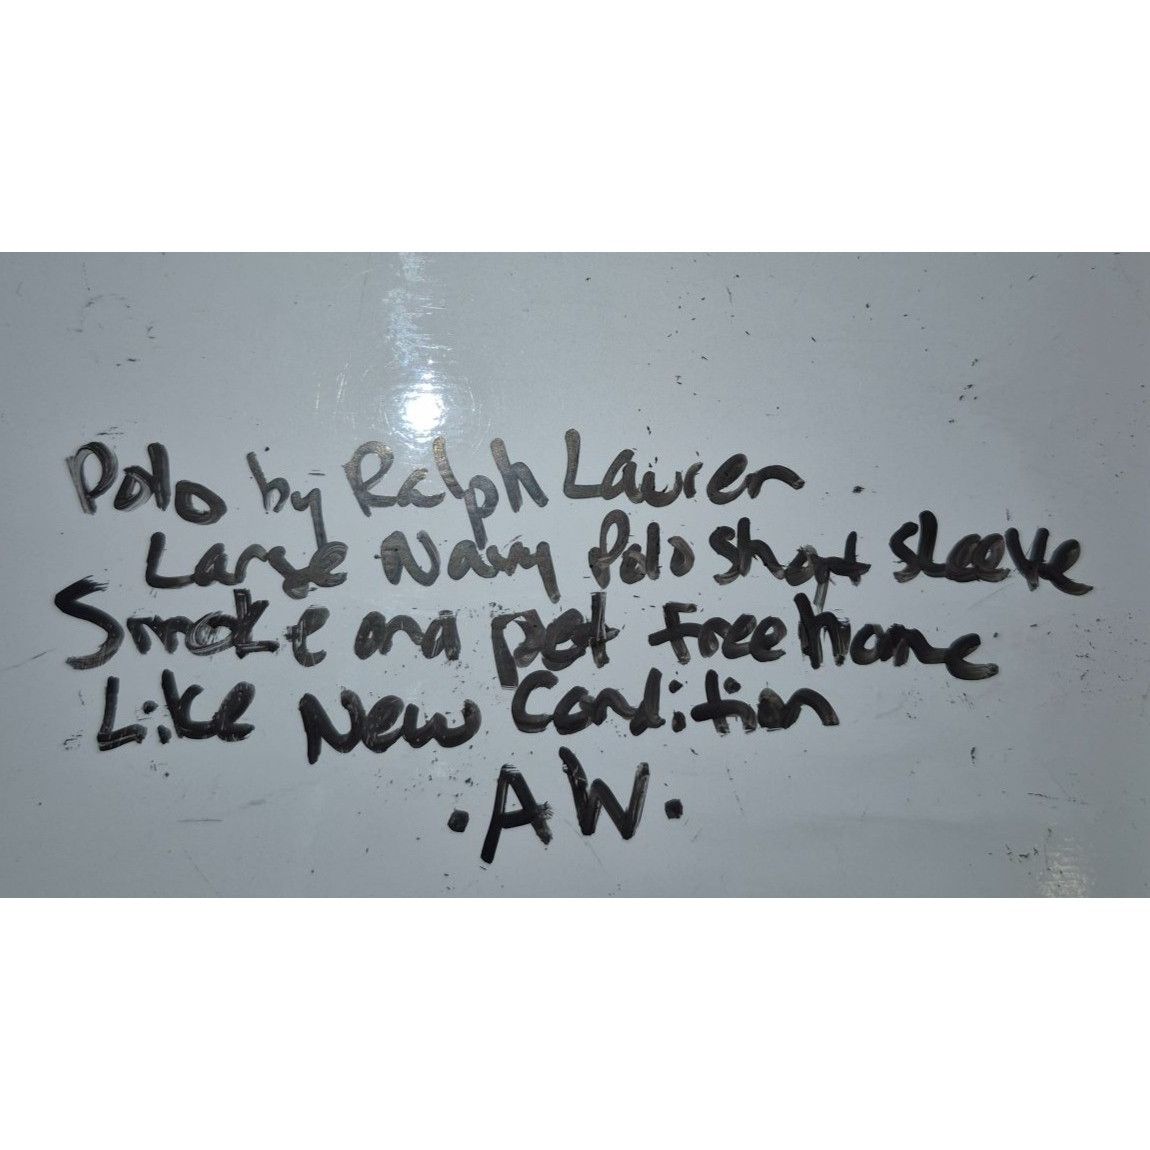 Polo by Ralph Lauren
Large Navy Polo Short sleeve
Smoke and pet free home
Like New Condition
. AW .